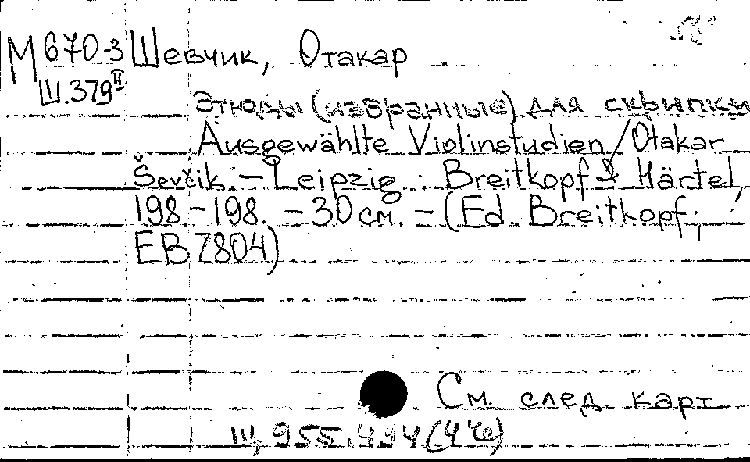 М 670-3 Шевчик, Отакар
Ш.379 II
Этюды (избранные) для скрипки
Ausgewählte Violinstudien / Otakar
Ševčik. – Leipzig : Breitkopf & Härtel,
198 – 198. – 30 см. – (Ed. Breitkopf;
EB 7804)
См. след. карт